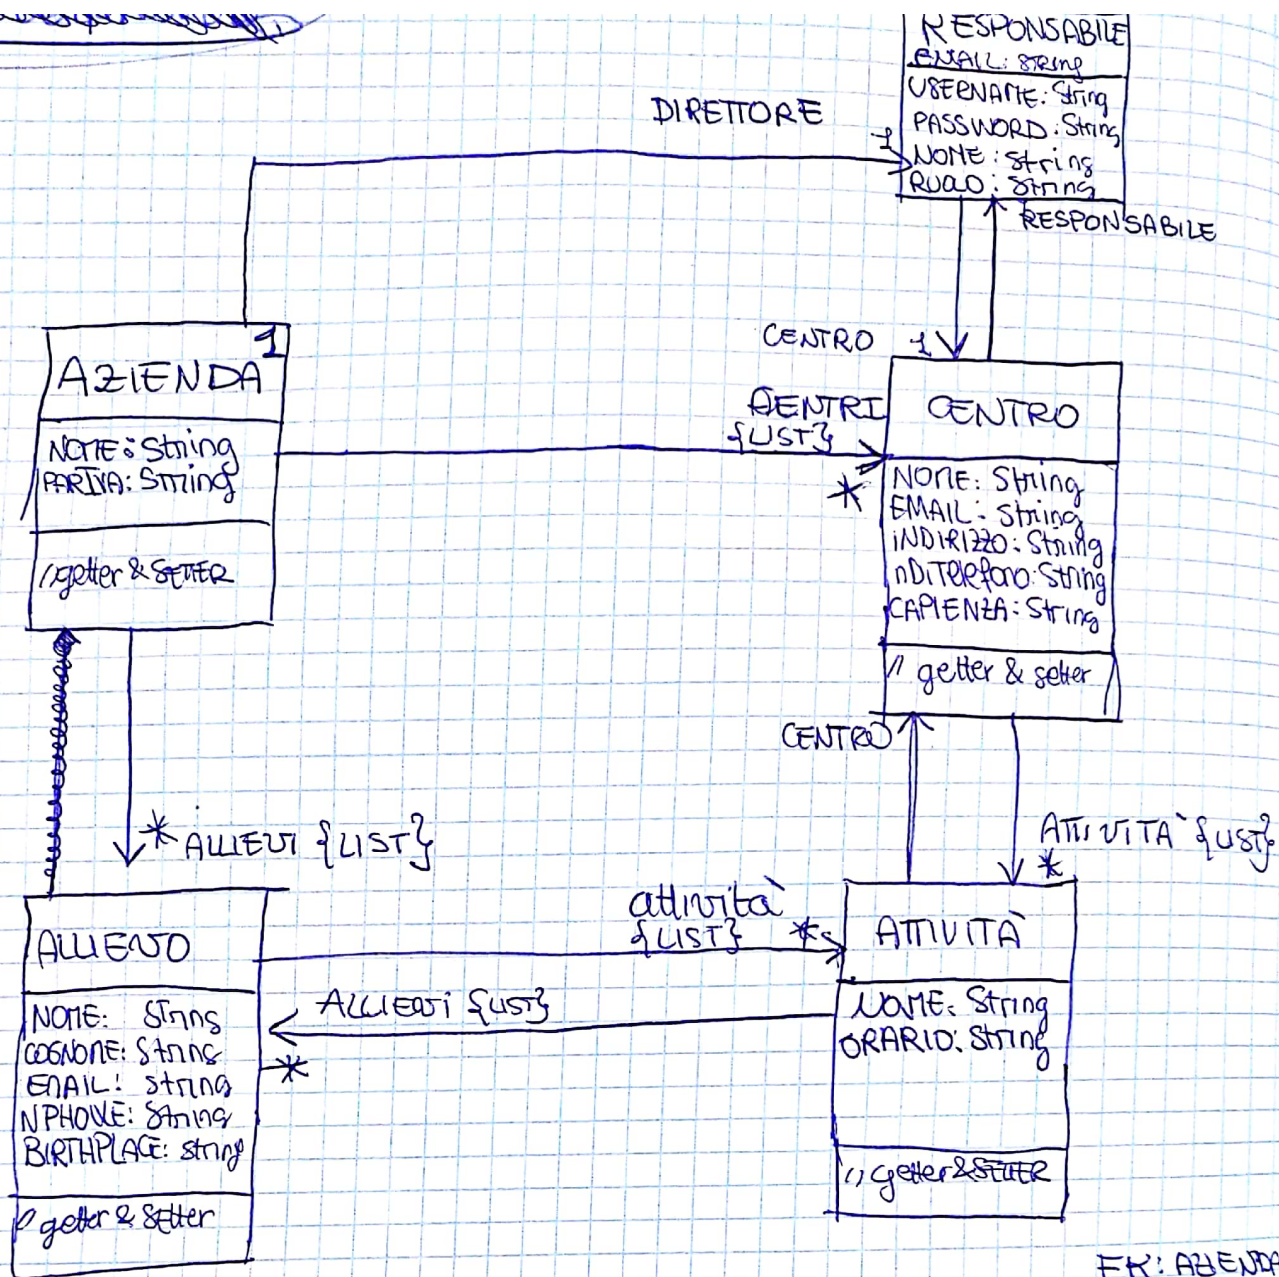 RESPONSABILE
EMAIL: String
USERNAME: String
PASSWORD: String
NOME: String
RUOLO: String
DIRETTORE
1
RESPONSABILE
CENTRO 1
AZIENDA
1
NOME: String
PARIVA: String
//getter & SETTER
CENTRI
{LIST}
*
CENTRO
NOME: String
EMAIL: String
INDIRIZZO: String
nDiTelefono: String
CAPIENZA: String
// getter & setter
CENTRO
* ALLIEVI {LIST}
ATTIVITÀ {LIST}
*
attività
{LIST} *
ALLIEVI {LIST}
*
ALLIEVO
NOME: String
COGNOME: String
EMAIL: String
NPHONE: String
BIRTHPLACE: String
// getter & setter
ATTIVITÀ
NOME: String
ORARIO: String
// getter & SETTER
FK: AZIENDA